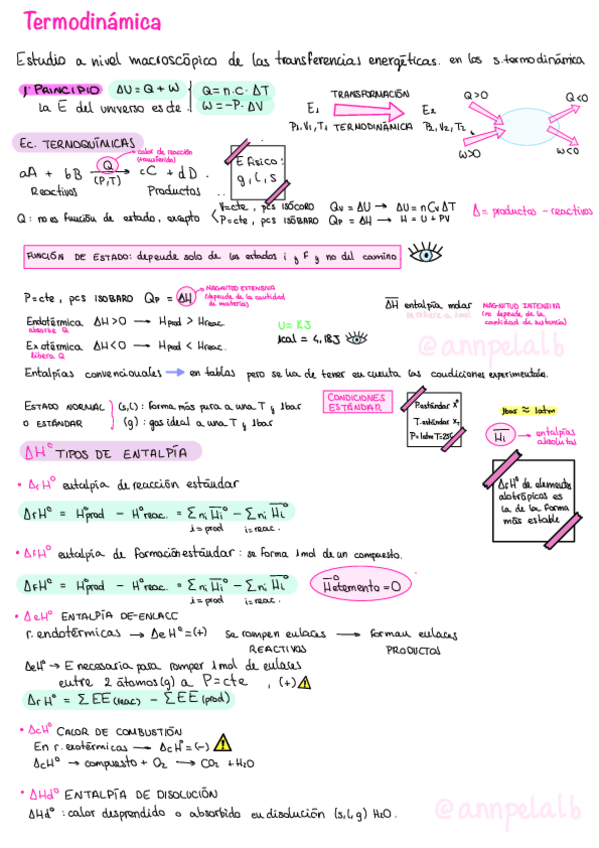 Termodinámica
Estudio a nivel macroscópico de las transferencias energéticas. en los s.termodinámica
1º PRINCIPIO ΔU = Q + W Q = n·c·ΔT
la E del universo es cte. W = -P·ΔV
TRANSFORMACIÓN
E1 E2
P1,V1,T1 TERMODINÁMICA P2,V2,T2
Q>0 Q<0
W>0 W<0
EC. TERMOQUÍMICAS
calor de reacción
(transferida)
aA + bB Q (P,T) cC + dD.
Reactivos Productos
E físico:
g, l, s
Q: no es función de estado, excepto
V=cte, pcs ISÓCORO Qv = ΔU → ΔU = n Cv ΔT
P=cte, pcs ISÓBARO Qp = ΔH → H = U + PV
Δ = productos - reactivos
FUNCIÓN DE ESTADO: depende solo de los estados i y F y no del camino
P=cte, pcs ISOBARO Qp = ΔH
MAGNITUD EXTENSIVA
(depende de la cantidad
de materia)
ΔH entalpía molar
se refiere a 1mol
MAGNITUD INTENSIVA
(no depende de la
cantidad de sustancia)
Endotérmica ΔH>0 → Hprod > Hreac.
absorbe Q
Exotérmica ΔH<0 → Hprod < Hreac.
libera Q
U = KJ
1cal = 4,18J
@annpelalb
Entalpías convencionales → en tablas pero se ha de tener en cuenta las condiciones experimentale.
ESTADO NORMAL (s,l): forma más pura a una T y 1bar
O ESTÁNDAR (g): gas ideal a una T y 1bar
CONDICIONES
ESTÁNDAR
P.estándar Xº
T.estándar XT
P=1atm T=25º
1bar ≈ 1atm
Hi → entalpías
absolutas
ΔHº TIPOS DE ENTALPÍA
ΔfHº de elementos
alotrópicos es
la de la forma
más estable
• ΔrHº entalpía de reacción estándar
ΔrHº = Hºprod - Hºreac. = Σni Hiº - Σni Hiº
i=prod i=reac.
• ΔfHº entalpía de formación estándar: se forma 1mol de un compuesto.
ΔfHº = Hºprod - Hºreac. = Σni Hiº - Σni Hiº
i=prod i=reac.
Hºelemento = 0
• ΔeHº ENTALPÍA DE-ENLACC
r. endotérmicas → ΔeHº = (+) se rompen enlaces → forman enlaces
REACTIVOS PRODUCTOS
ΔeHº → E necesaria para romper 1mol de enlaces
entre 2 átomos(g) a P=cte, (+)
ΔrHº = ΣEE(reac) - ΣEE(prod)
• ΔcHº CALOR DE COMBUSTIÓN
En r. exotérmicas → ΔcHº = (-)
ΔcHº → compuesto + O2 → CO2 + H2O
• ΔHdº ENTALPÍA DE DISOLUCIÓN
ΔHdº: calor desprendido o absorbido en disolución (s,l,g) H2O.
@annpelalb